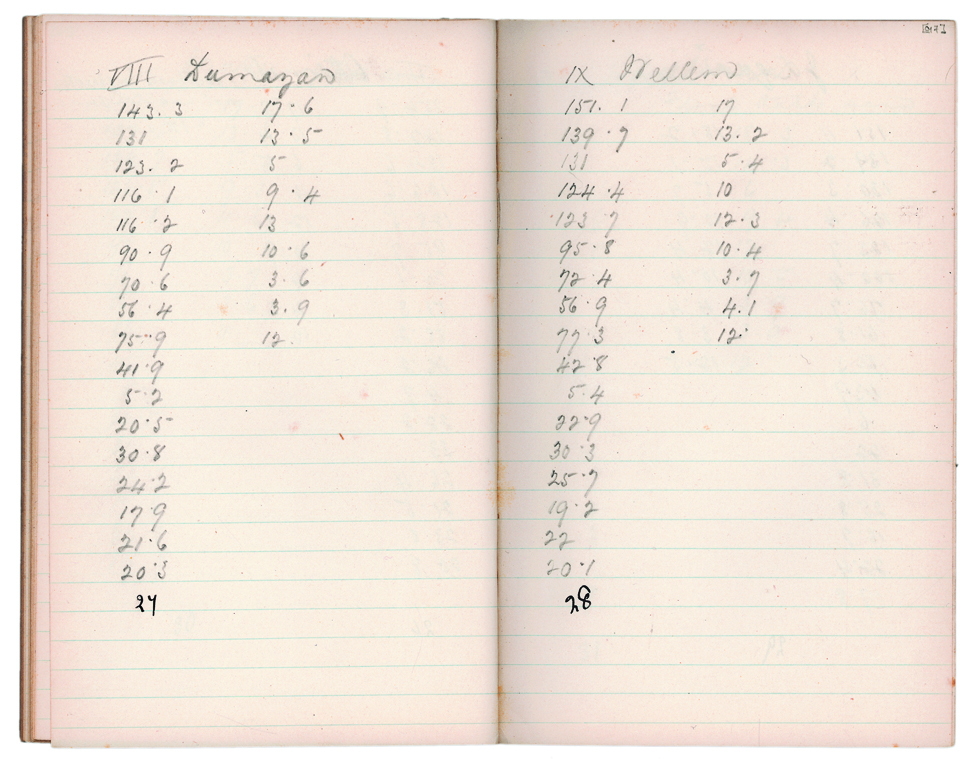 VIII Damayan
143.3 17.6
131 13.5
123.2 5
116.1 9.4
116.2 13
90.9 10.6
70.6 3.6
56.4 3.9
75.9 12.
41.9
5.2
20.5
30.8
24.2
17.9
21.6
20.3
27
IX Wellem
151.1 17
139.7 13.2
131 5.4
124.4 10
123 7 12.3
95.8 10.4
72.4 3.7
56.9 4.1
77.3 12.
42 8
5.4
22.9
30.3
25.7
19.2
22
20.1
28